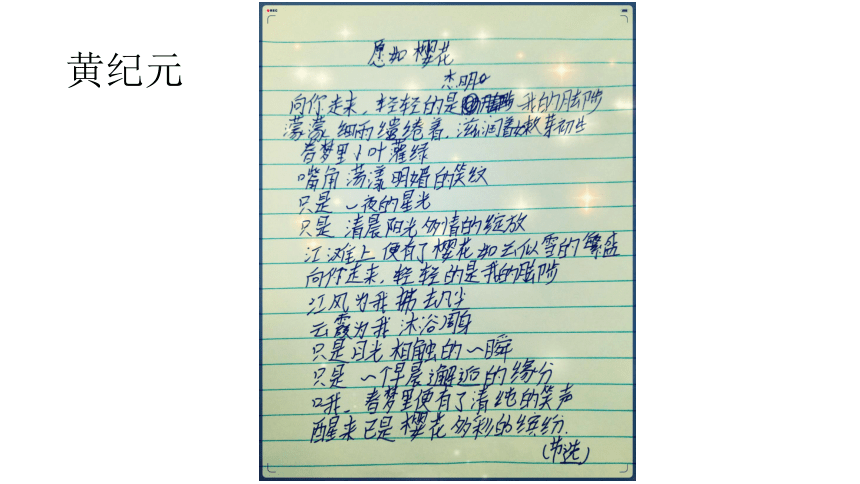 黄纪元
愿如樱花
杰明
向你走来,轻轻的是我的脚步
濛濛细雨缱绻着,滋润着嫩芽初生
春梦里小叶萝绿
嘴角荡漾明媚的笑纹
只是一夜的星光
只是清晨阳光多情的绽放
江滩上便有了樱花如云似雪的繁盛
向你走来,轻轻的是我的脚步
江风为我拂去凡尘
云霞为我沐浴周身
只是目光相触的一瞬
只是一个早晨邂逅的缘分
哦,春梦里便有了清纯的笑声
醒来已是樱花多彩的缤纷.
(节选)